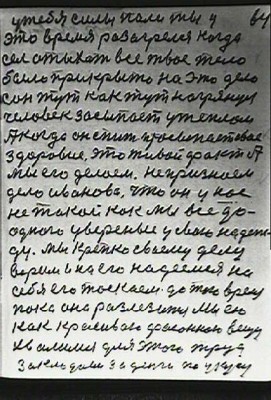 у тебя силы пали ты у 64
это время разагрелся когда
сел отыхат все твое тело
было прикрыто на это дело
сон тут как тут нагрянул
человек засыпает у теплом
А когда он спит просыпается ево
здоровие. Это живой факт А
мы его делаем. непризноем
дело иванова. что он у нас
не такой как мы все до-
одного уверены у свою надеж-
ду. мы крепко своему делу
верим и на его надеемся на
себя его тоскаем. до той время
пока она разлезится мы ею
как красивою дасконною вещу
хвалимся для этого труд
закладаем за деньги по укусу